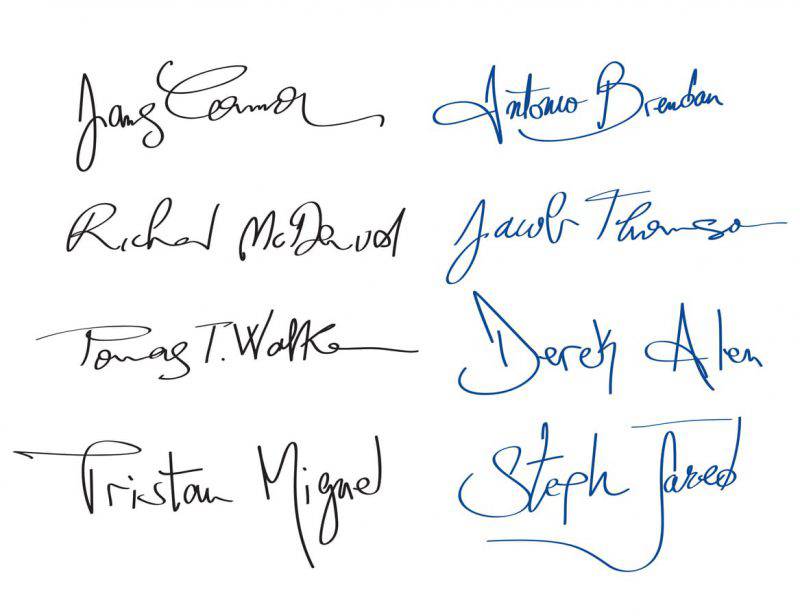 James Connor
Antonio Brendan
Richard McDermod
Jacob Thomson
Tomas T. Walker
Derek Alen
Tristan Miguel
Steph Jared